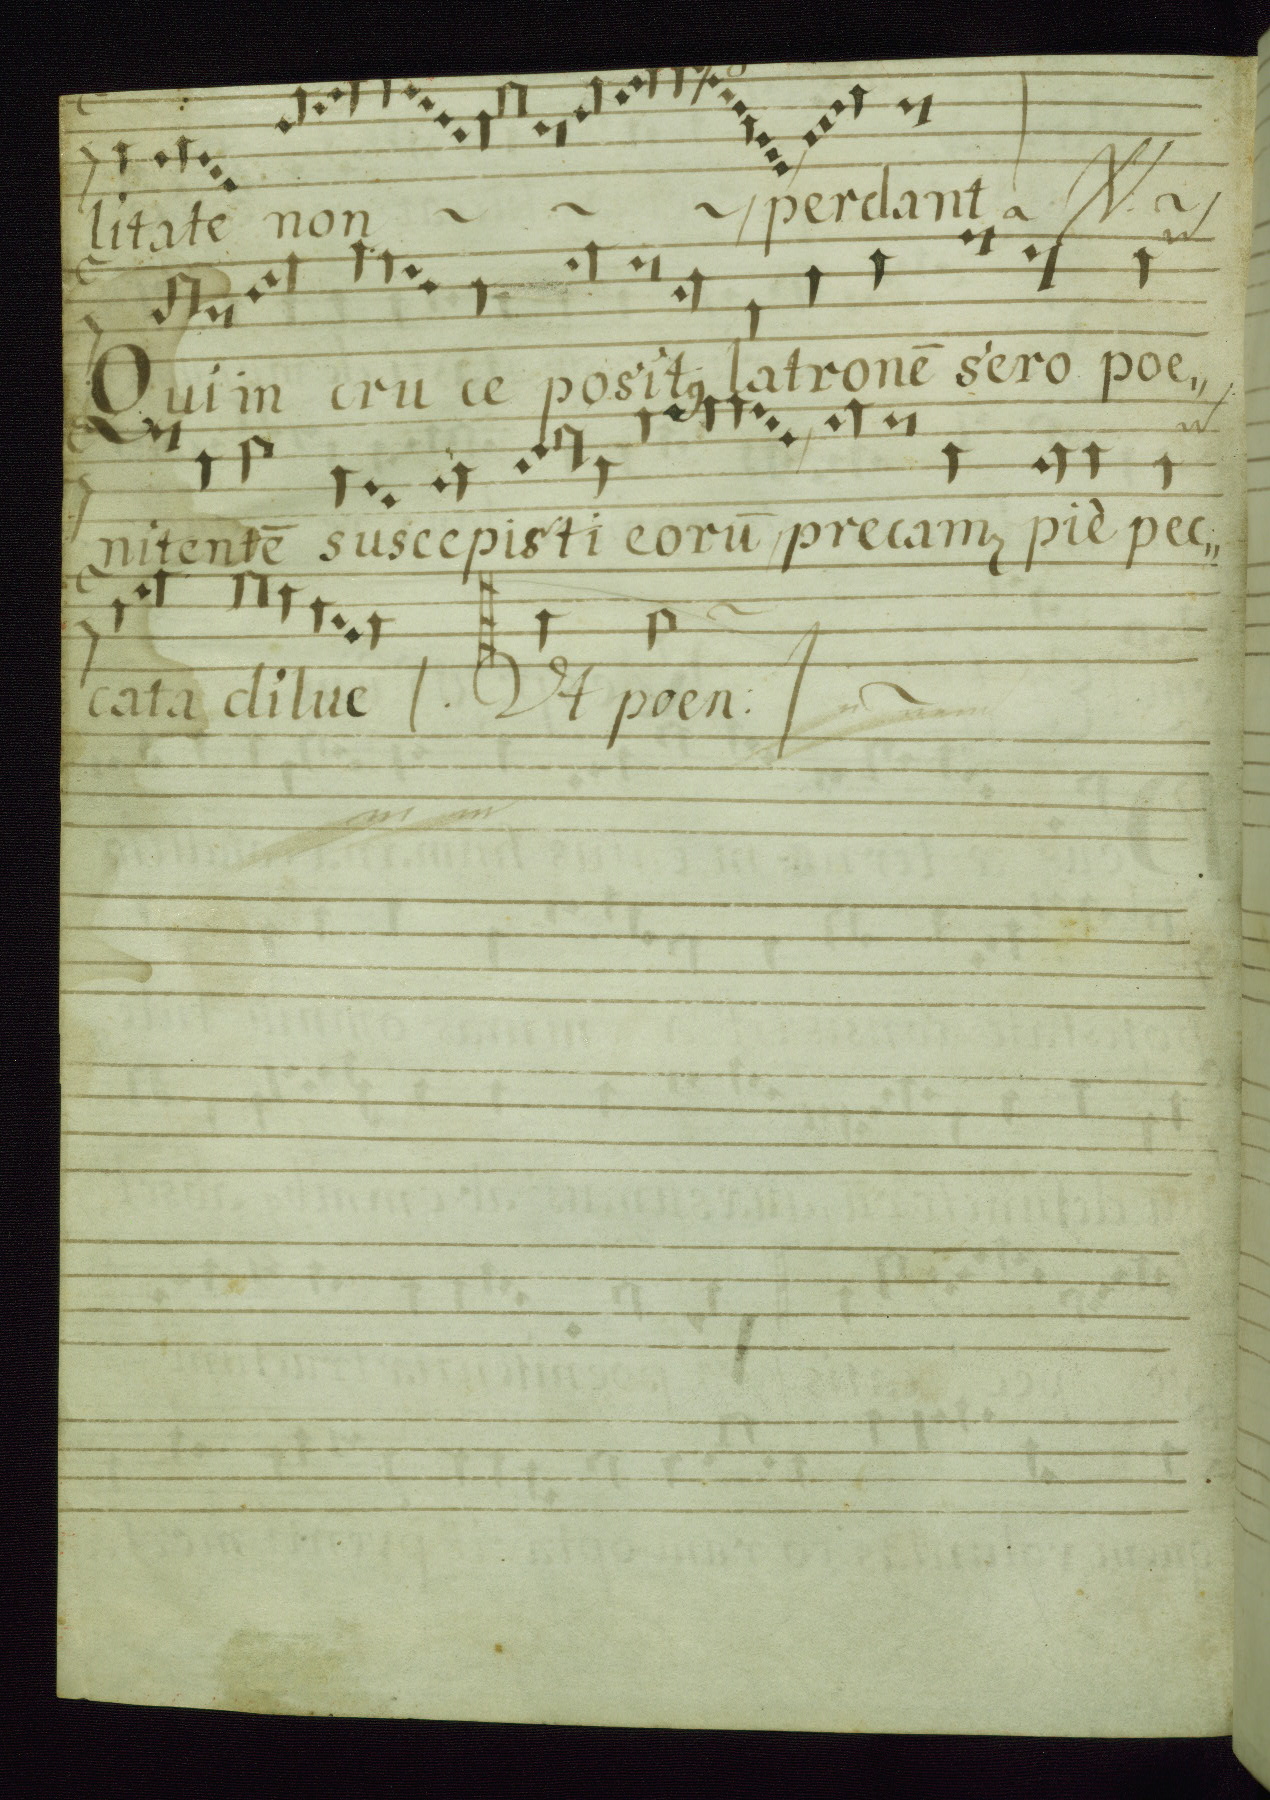 litate non perdant a V.
Qui in cru ce posit9 latronē sero poe,,
nitentē suscepisti eorū precamꝫ piè pec,,
cata dilue Vt poen: